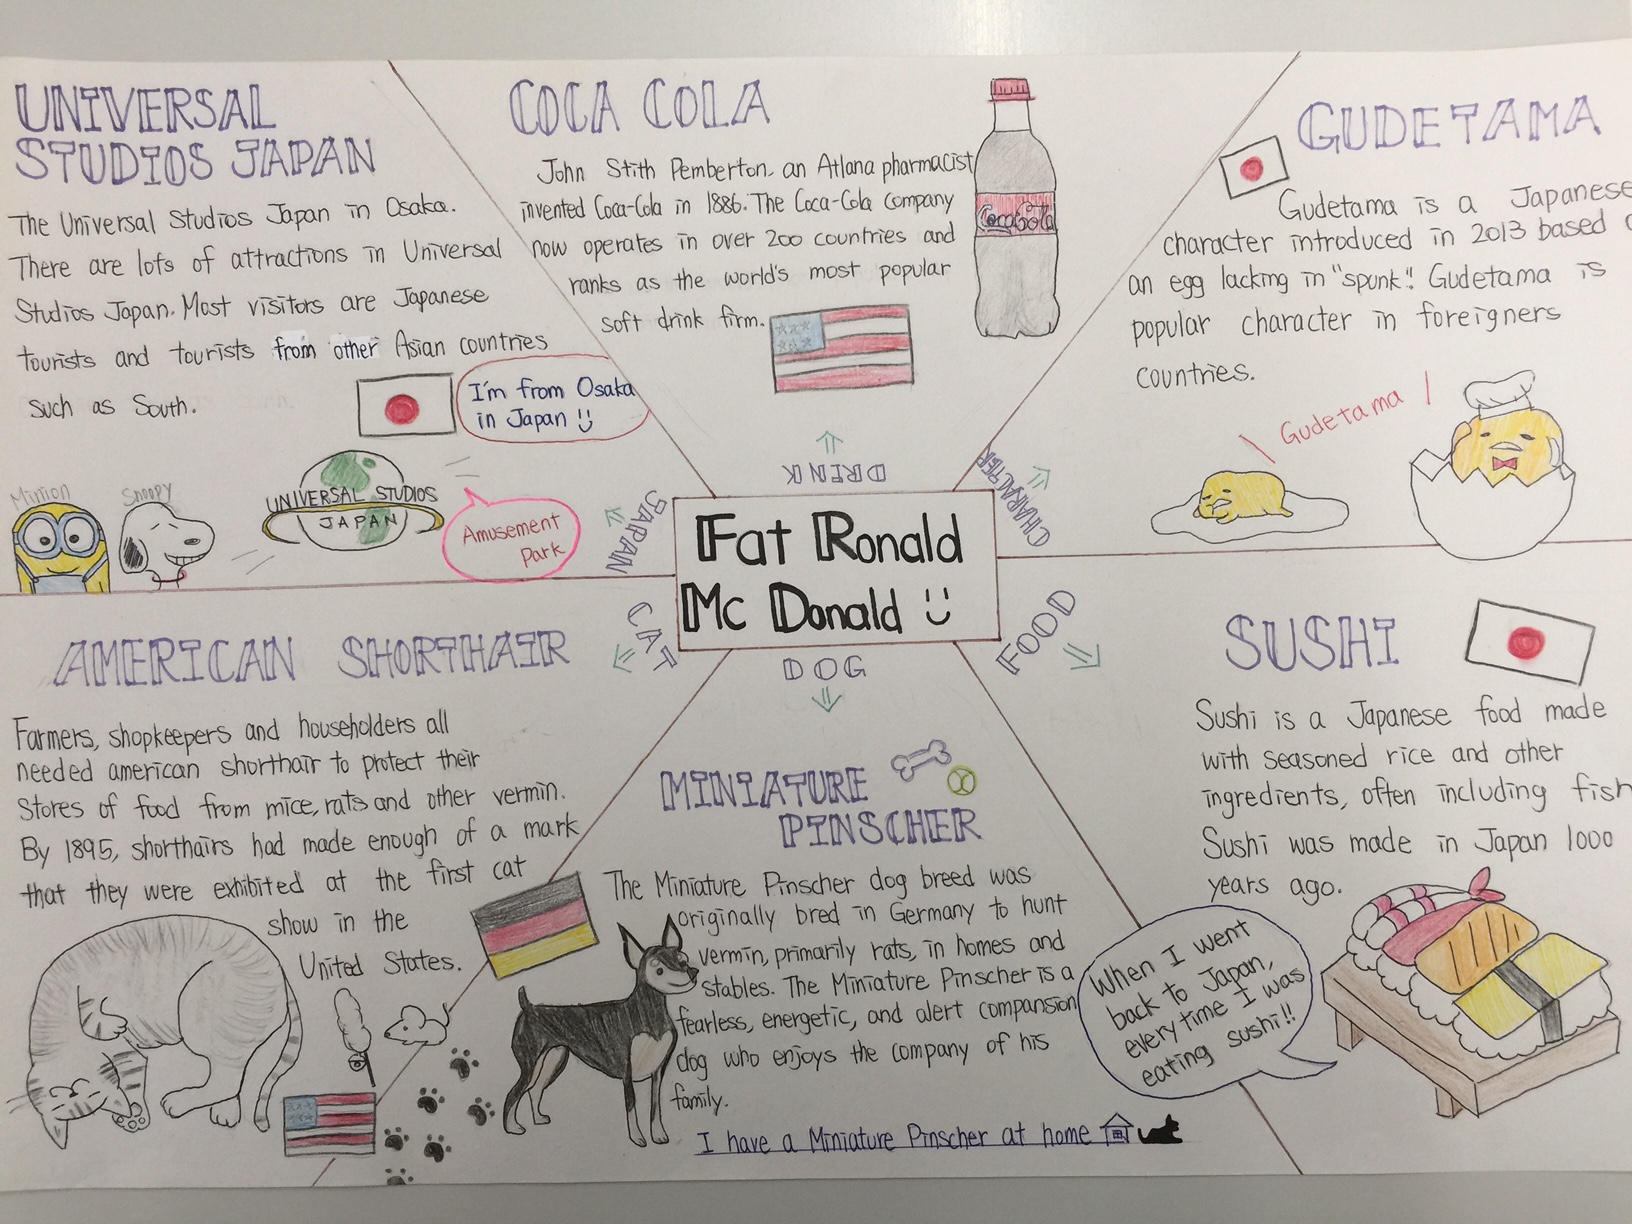 UNIVERSAL
STUDIOS JAPAN
The Universal Studios Japan in Osaka.
There are lots of attractions in Universal
Studios Japan. Most visitors are Japanese
tourists and tourists from other Asian countries
such as South.
I'm from Osaka
in Japan
Minion
Snoopy
UNIVERSAL STUDIOS
JAPAN
Amusement
Park
COCA COLA
John Stith Pemberton, an Atlana pharmacist
invented Coca-Cola in 1886. The Coca-Cola Company
now operates in over 200 countries and
ranks as the world's most popular
soft drink firm.
Coca Cola
GUDETAMA
Gudetama is a Japanese
character introduced in 2013 based
an egg lacking in "spunk". Gudetama is
popular character in foreigners
countries.
Gudetama
JAPAN
DRINK
CHARACTER
Fat Ronald
Mc Donald
CAT
DOG
FOOD
AMERICAN SHORTHAIR
Farmers, shopkeepers and householders all
needed american shorthair to protect their
stores of food from mice, rats and other vermin.
By 1895, shorthairs had made enough of a mark
that they were exhibited at the first cat
show in the
United States.
MINIATURE
PINSCHER
The Miniature Pinscher dog breed was
originally bred in Germany to hunt
vermin, primarily rats, in homes and
stables. The Miniature Pinscher is a
fearless, energetic, and alert compansion
dog who enjoys the company of his
family.
I have a Miniature Pinscher at home
SUSHI
Sushi is a Japanese food made
with seasoned rice and other
ingredients, often including fish
Sushi was made in Japan 1000
years ago.
When I went
back to Japan,
every time I was
eating sushi!!